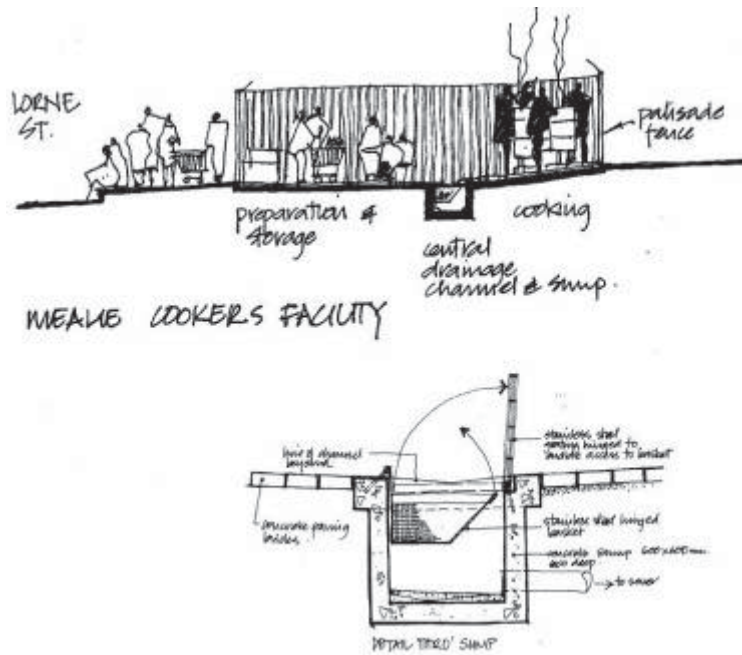 LORNE
ST.
palisade
fence
preparation &
storage
cooking
central
drainage
channel & sump.
MEALIE COOKERS FACILITY
line of channel
beyond
stainless steel
grating hinged to
access to basket
concrete paving
bricks
stainless steel hinged
basket
concrete sump 600x600mm
deep
to sewer
DETAIL THRO' SUMP